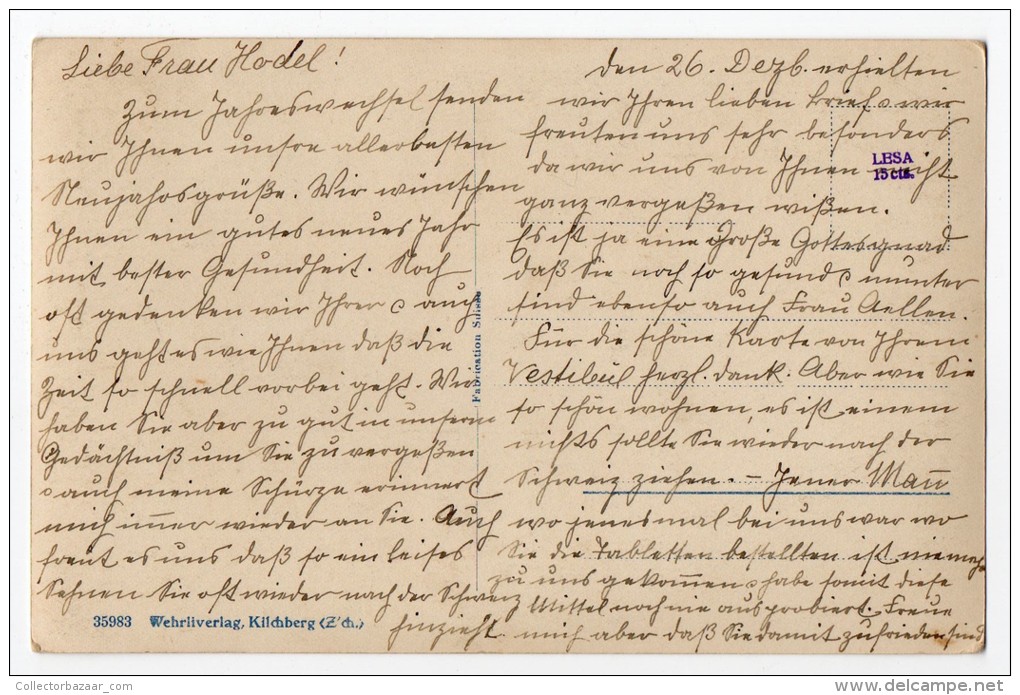 Liebe Frau Hodel!
Zum Jahreswechsel senden
wir Ihnen unsre allerbesten
Neujahrsgrüße. Wir wünschen
Ihnen ein gutes neues Jahr
mit bester Gesundheit. Noch
oft gedenken wir Ihrer & auch
uns geht es wie Ihnen daß die
Zeit so schnell vorbei geht. Wir
haben Sie aber zu gut in unserm
Gedächtniß um Sie zu vergeßen
& auch meine Schürze erinnert
mich im̅er wieder an Sie. Auch
freut es uns daß so ein leises
Sehnen Sie oft wieder nach der Schweiz
hinzieht.
den 26. Dezb. erhielten
wir Ihren lieben Brief & wir
freuten uns sehr besonders
da wir uns von Ihnen nicht
ganz vergeßen wißen.
Es ist ja eine große Gottesgnad
daß Sie noch so gesund & munter
sind ebenso auch Frau Aellen.
Für die schöne Karte von Ihrem
Vestibül herzl. dank. Aber wie Sie
so schön wohnen, es ist einem
nichts sollte Sie wieder nach der
Schweiz ziehen. – Jener Man̅
wo jenesmal bei uns war wo
Sie die Tabletten bestellten ist niemehr
zu uns gekom̅en & habe somit diese
Mittel noch nie ausprobiert. Freue
mich aber daß Sie damit zufrieden sind
LESA
15 cts.
Fabrication Suisse
35983 Wehrliverlag, Kilchberg (Z'ch.)
CollectorBazaar_com@
http://www.delcampe.net